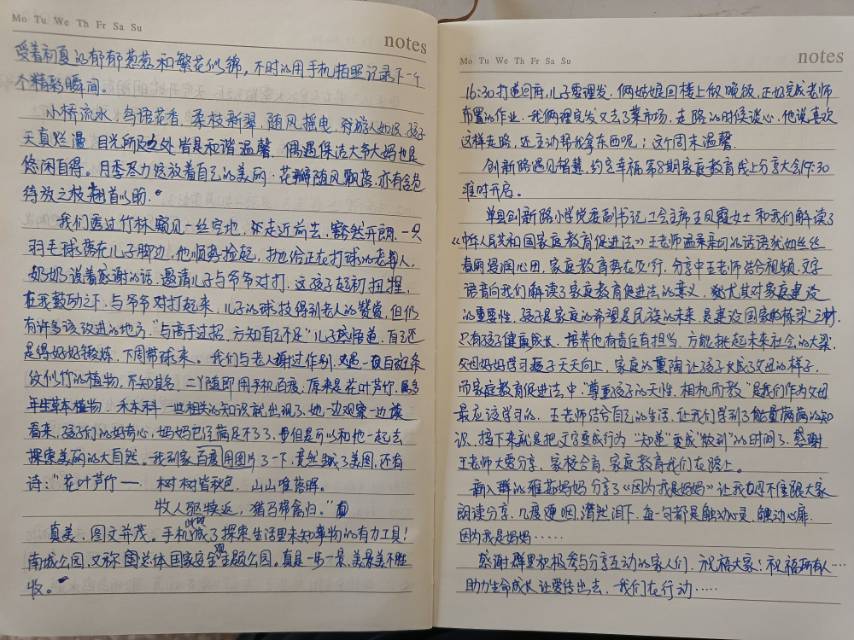 Mo Tu We Th Fr Sa Su
notes
受着初夏的郁郁葱葱和繁花似锦，不时的用手机拍照记录下一个
个精彩瞬间。
小桥流水，鸟语花香，柔枝新翠，随风摇曳，
天真烂漫，目光所及之处皆是和谐温馨，偶遇保洁大爷大妈也是
悠闲自得。月季尽力绽放着自己的美丽，花瓣随风飘落，亦有含苞
待放之枝翘首以盼。
我们透过竹林窥见一丝空地，走近前去，豁然开朗，一只
羽毛球落在儿子脚边，他顺势捡起，给正在打球的老人，
奶奶说着感谢的话，邀请儿子与爷爷对打，这孩子起初扭捏，
在我鼓动之下，与爷爷对打起来，儿子的球技得到老人的赞赏，但仍
有许多该改进的地方，"与高手过招，方知自己不足"儿子感悟道，自己还
是得好好锻炼，下周带球来。我们与老人谢过作别，又见一版白斑条
纹似竹的植物，不知其名，丫随即用手机百度，原来是花叶芦竹，
年生草本植物，禾本科一些相关的知识就出现了，她一边观察一边
看来，孩子们的好奇心，妈妈已经满足不了了，但是可以和他一起去
探索美丽的大自然。我到家百度用图片了一下，竟然到了美图，还有
诗："花叶芦竹——树树皆秋色，山山唯落晖。
牧人驱犊返，猎马带禽归。"
真美，图文并茂。手机成了探索生活里未知事物的有力工具！
南城公园，又称总体国家安全主题公园。真是一步一景，美景美不胜
收。
Mo Tu We Th Fr Sa Su
notes
16:30打道回府，儿子要理发，俩姑娘回楼上做晚饭，正好完成老师
布置的作业，我俩理完发又去了菜市场，走路的时候谈心，他说喜欢
这样走路，还主动帮我拿东西呢；这个周末温馨。
创新路遇见智慧，约定幸福第8期家庭教育线上分享大会19:30
准时开启。
单县创新路小学党委副书记工会主席王凤霞女士和我们解读了
《中华人民共和国家庭教育促进法》王老师温柔的话语犹如丝丝
春雨浸润心田，家庭教育势在必行，分享中王老师结合视频、文字
语音向我们解读了家庭教育促进法的意义，尤其对家庭建设
的重要性，孩子是家庭的希望是民族的未来是建设国家的栋梁之材，
只有孩子健康成长，培养他有责任有担当，方能挑起未来社会的大梁，
父母好好学习孩子天天向上，家庭的熏陶让孩子大成了父母的样子，
而家庭教育促进法，中"尊重孩子的天性，相机而教"是我们作为父母
最应该学习的，王老师结合自己的生活，让我们学到了能量满满的知
识，接下来就是把文字变成行为"知道"变成"做到"的时间了，感谢
王老师大爱分享，家校合育，家庭教育我们在路上。
新入群的雅茹妈妈分享了《因为我是妈妈》让我忍不住跟大家
朗读分享，几度哽咽，潸然泪下，每一句都是触动心灵，触动心扉，
因为我是妈妈……
感谢群里积极参与分享互动的家人们，祝福大家！祝福所有人…
助力生命成长让爱传出去，我们在行动……